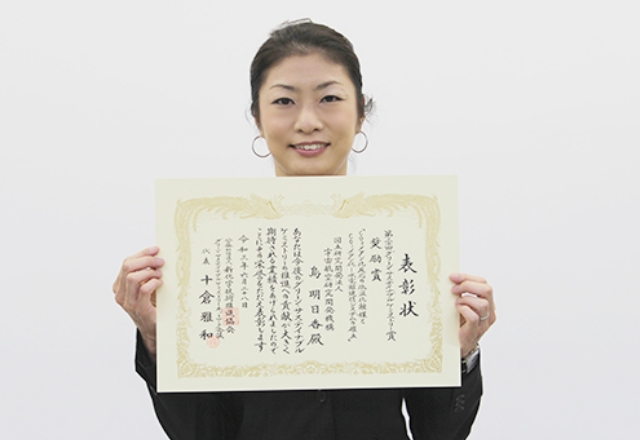 表彰状
グリーン・サステイナブルケミストリー賞
奨励賞
国立研究開発法人
宇宙航空研究開発機構
島 明日香殿
あなたは今後のグリーンサステイナブル
ケミストリーの推進へ貢献が大きく
期待される業績をあげられましたので
ここにその栄誉をたたえ表彰します
令和三年六月二八日
公益社団法人 新化学技術推進協会
代表 十倉雅和